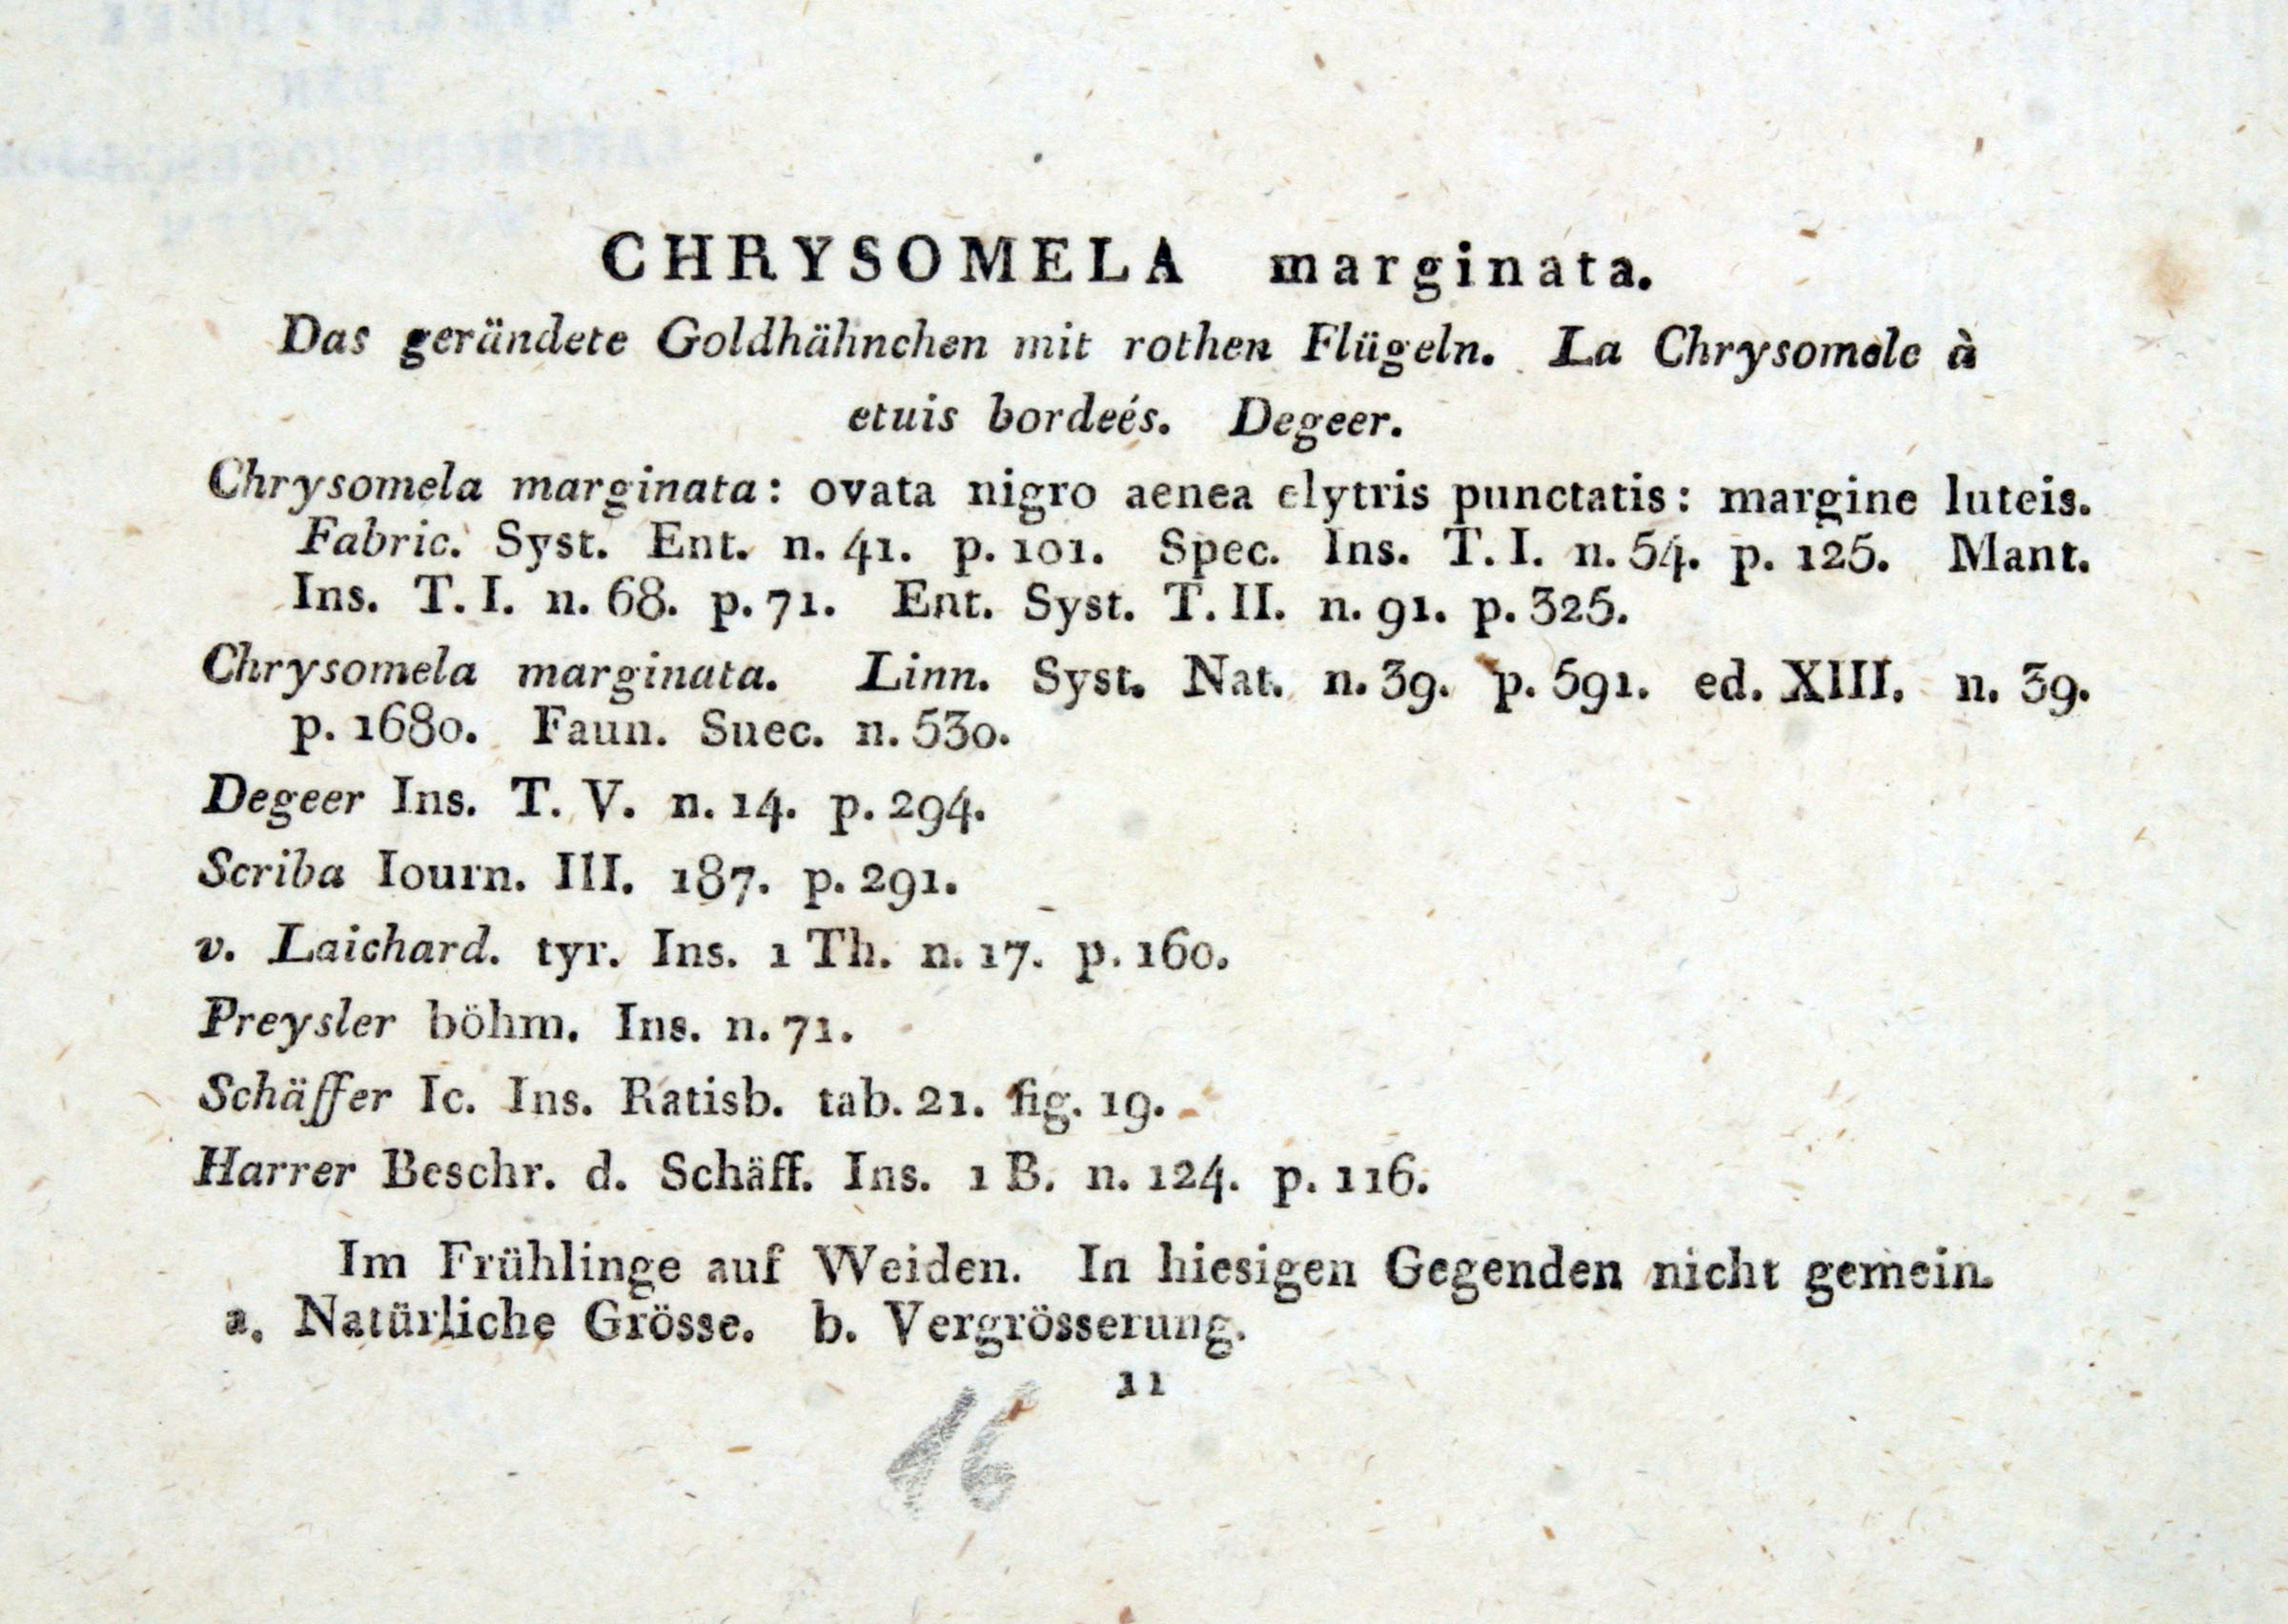 CHRYSOMELA marginata.
Das gerändete Goldhähnchen mit rothen Flügeln. La Chrysomele à
etuis bordeés. Degeer.
Chrysomela marginata: ovata nigro aenea elytris punctatis: margine luteis.
Fabric. Syst. Ent. n. 41. p. 101. Spec. Ins. T. I. n. 54. p. 125. Mant.
Ins. T. I. n. 68. p. 71. Ent. Syst. T. II. n. 91. p. 325.
Chrysomela marginata. Linn. Syst. Nat. n. 39. p. 591. ed. XIII. n. 39.
p. 1680. Faun. Suec. n. 530.
Degeer Ins. T. V. n. 14. p. 294.
Scriba Iourn. III. 187. p. 291.
v. Laichard. tyr. Ins. 1 Th. n. 17. p. 160.
Preysler böhm. Ins. n. 71.
Schäffer Ic. Ins. Ratisb. tab. 21. fig. 19.
Harrer Beschr. d. Schäff. Ins. 1 B. n. 124. p. 116.
Im Frühlinge auf Weiden. In hiesigen Gegenden nicht gemein.
a. Natürliche Grösse. b. Vergrösserung.
11
16